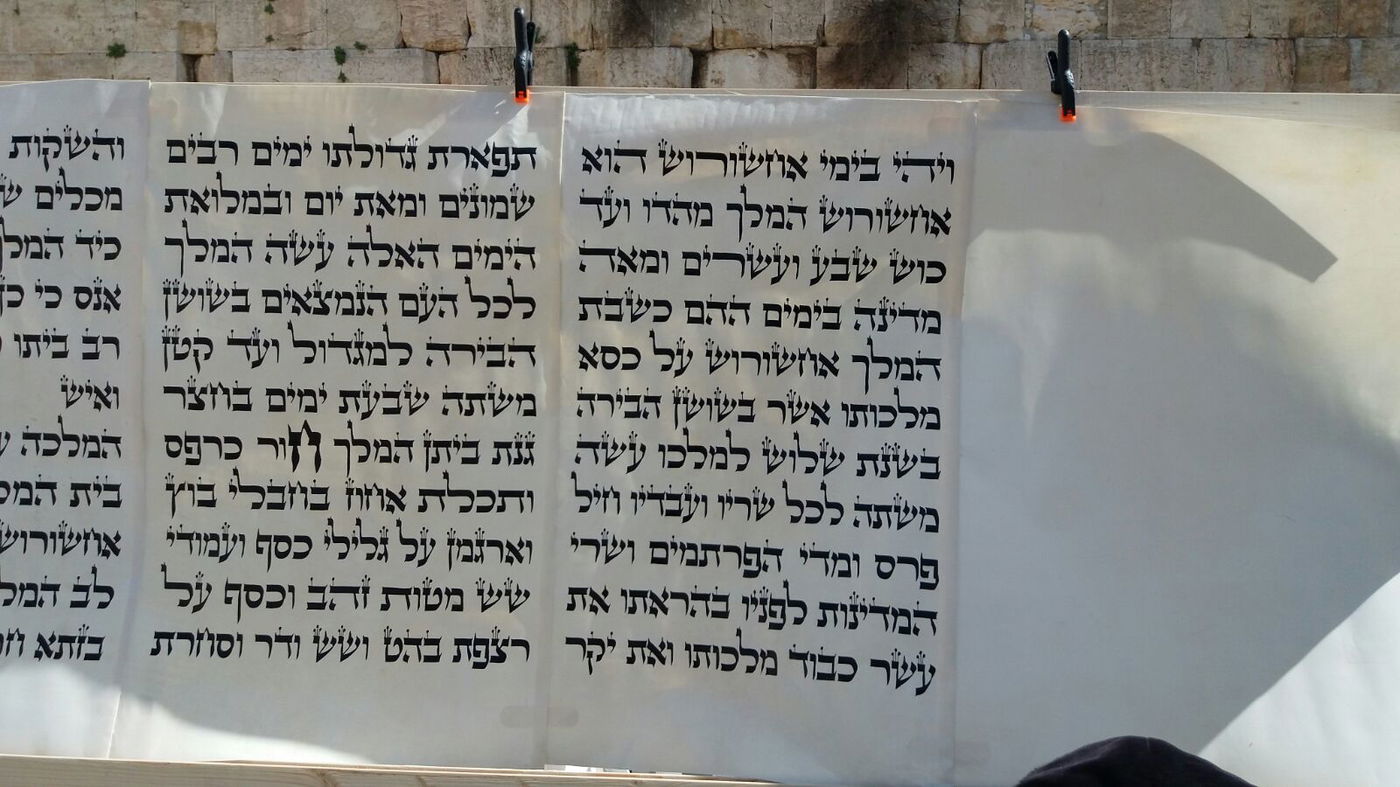 ויהי בימי אחשורוש הוא
אחשורוש המלך מהדו ועד
כוש שבע ועשרים ומאה
מדינה בימים ההם כשבת
המלך אחשורוש על כסא
מלכותו אשר בשושן הבירה
בשנת שלוש למלכו עשה
משתה לכל שריו ועבדיו חיל
פרס ומדי הפרתמים ושרי
המדינות לפניו בהראתו את
עשר כבוד מלכותו ואת יקר
תפארת גדולתו ימים רבים
שמונים ומאת יום ובמלואת
הימים האלה עשה המלך
לכל העם הנמצאים בשושן
הבירה למגדול ועד קטן
משתה שבעת ימים בחצר
גנת ביתן המלך חור כרפס
ותכלת אחוז בחבלי בוץ
וארגמן על גלילי כסף ועמודי
שש מטות זהב וכסף על
רצפת בהט ושש ודר וסחרת
והשקות
מכלים
כיד המלך
אנס כי כן
רב ביתו
ואיש
המלכה
בית
אחשורוש
לב
בזתא